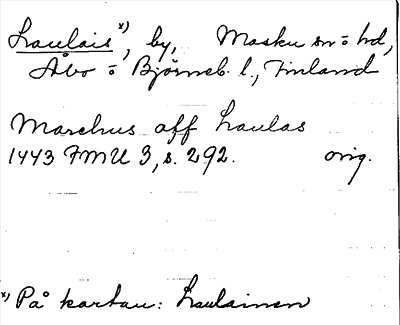 Laulais x), by, Masku sn o hd,
Åbo o Björneb. l., Finland
Marchus aff Laulas
1443 FMU 3, s. 292. orig.
x) På kartan: Laulainen